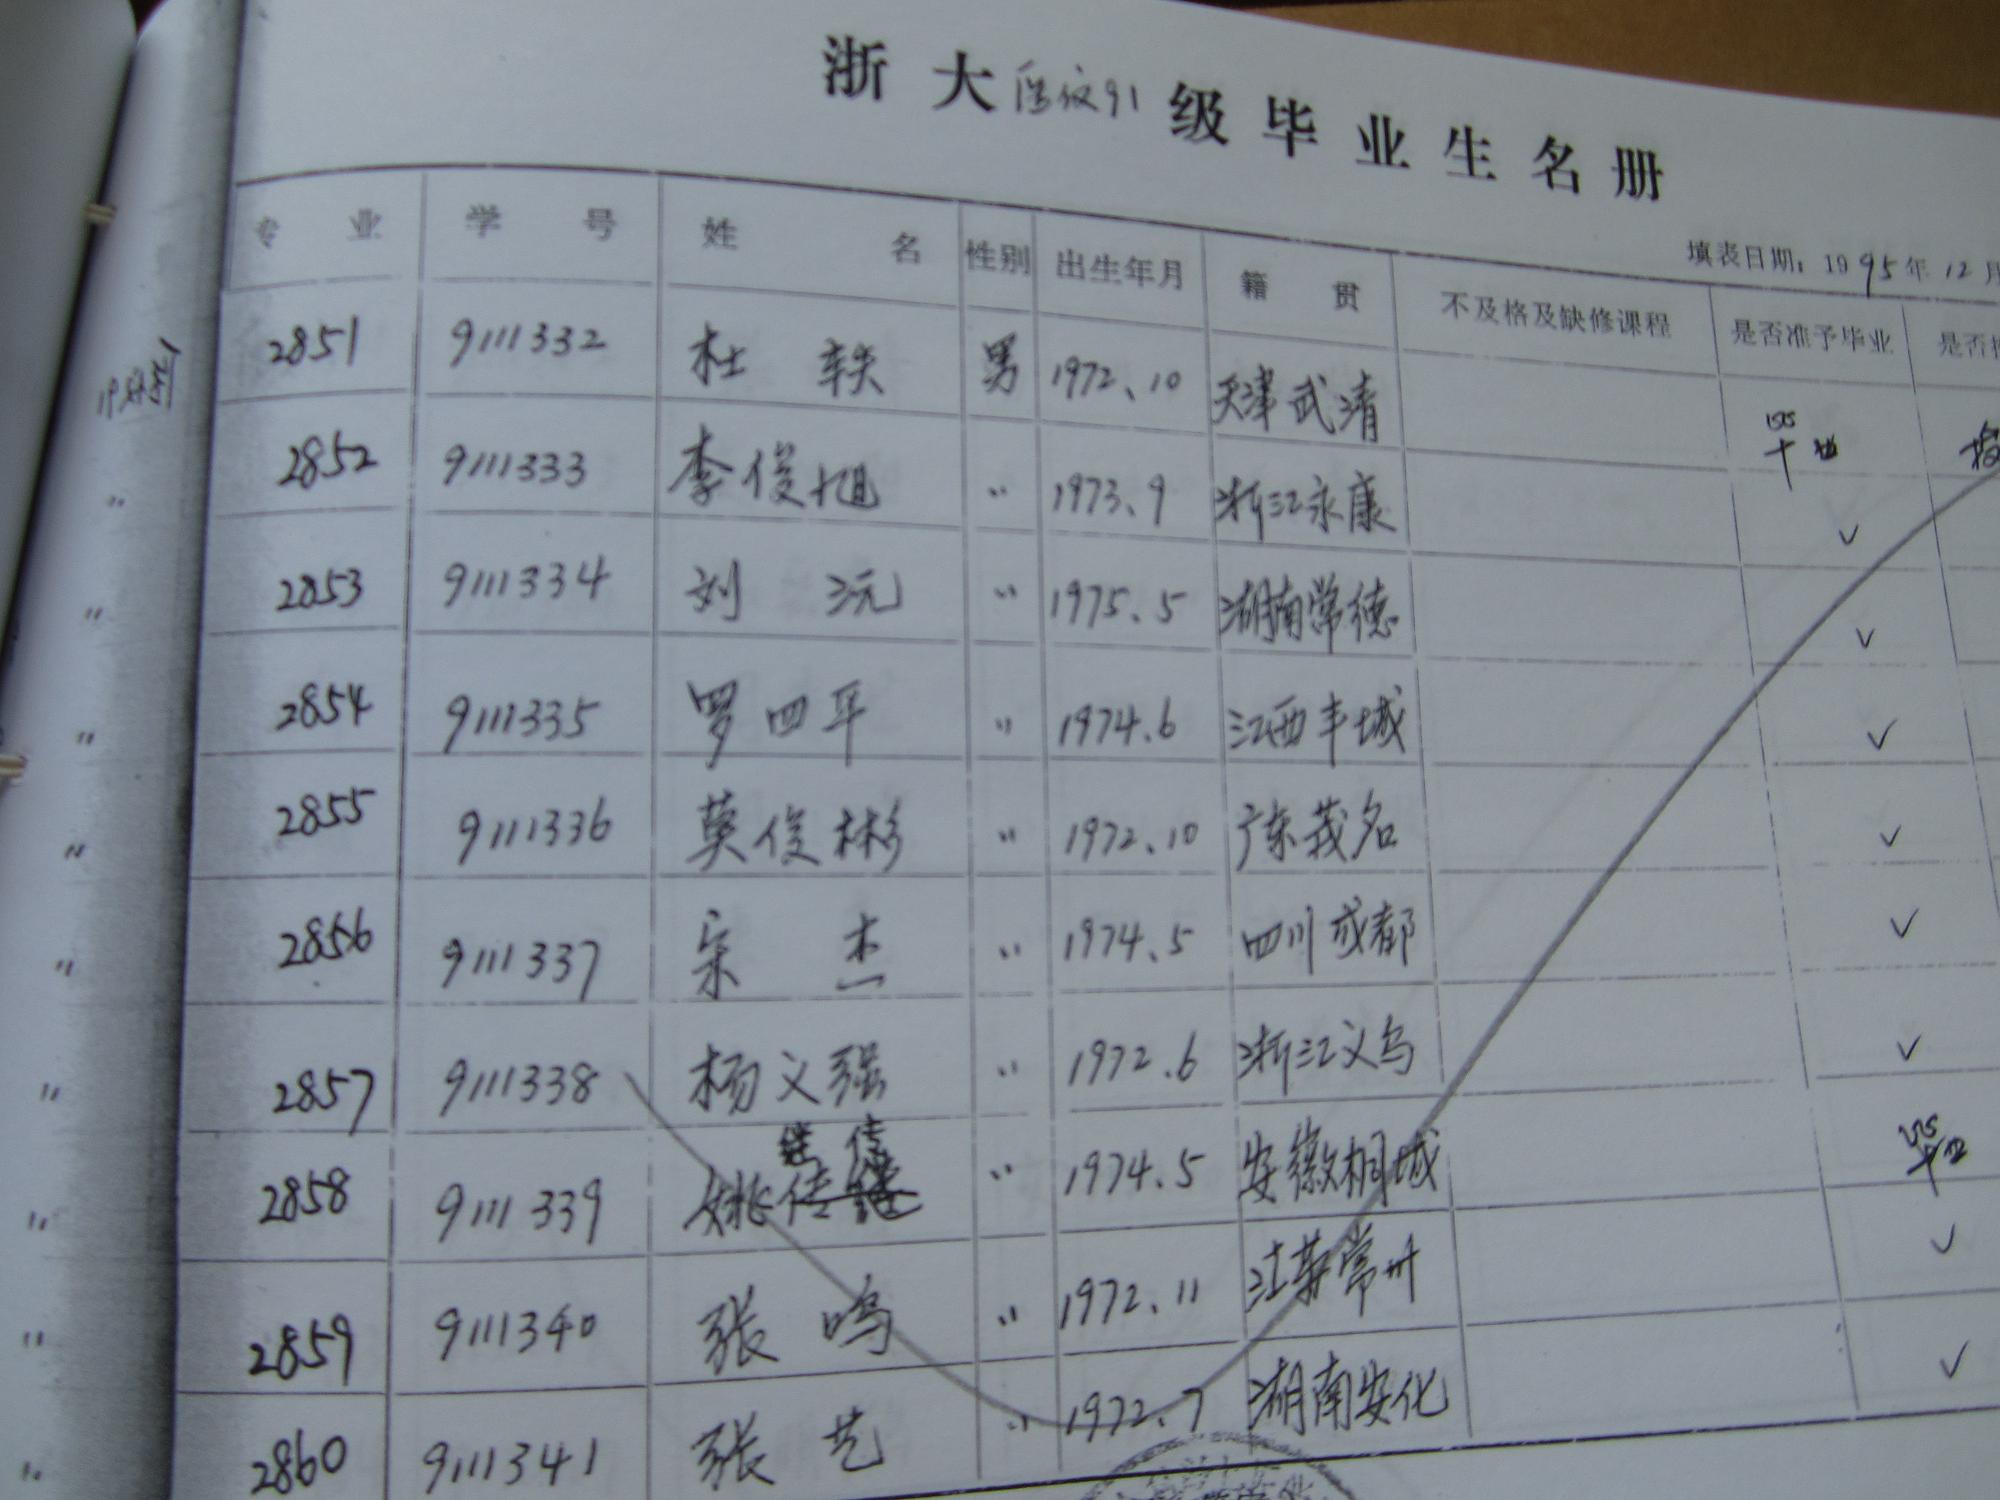 浙大 91 级毕业生名册
填表日期：1995年12月
专业 学号 姓名 性别 出生年月 籍贯 不及格及缺修课程 是否准予毕业 是否
2851 9111332 杜轶 男 1972、10 天津武清
2852 9111333 李俊旭 〃 1973、9 浙江永康 ✓
2853 9111334 刘沅 〃 1975、5 湖南常德 ✓
2854 9111335 罗四平 〃 1974.6 江西丰城 ✓
2855 9111336 莫俊彬 〃 1972、10 广东茂名 ✓
2856 9111337 宋杰 〃 1974、5 四川成都 ✓
2857 9111338 杨义强 〃 1972.6 浙江义乌 ✓
继传
2858 9111339 姚传继 〃 1974.5 安徽桐城
2859 9111340 张鸣 〃 1972、11 江苏常州 ✓
2860 9111341 张艺 〃 1972、7 湖南安化 ✓